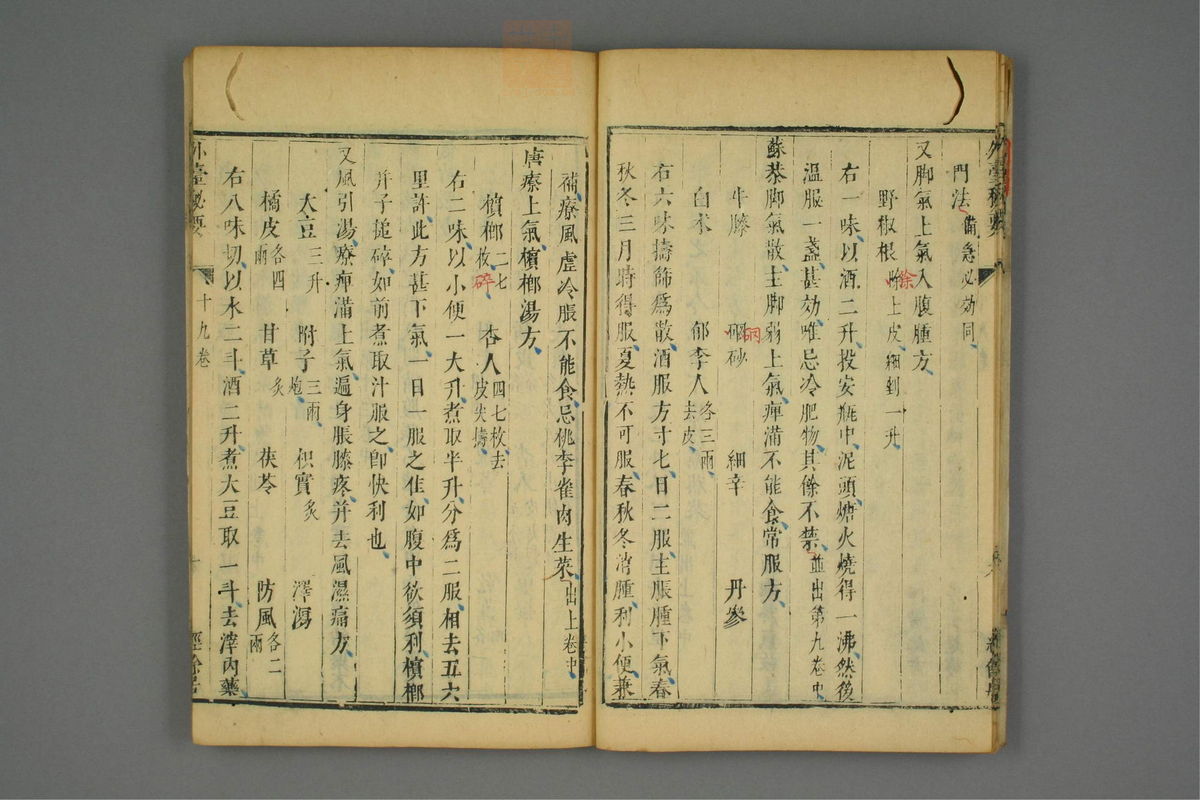 門法備急必効同
又脚氣上氣入腹腫方
野椒根除上皮細剉一升
右一味以酒二升投安瓶中泥頭煻火燒得一沸然後
溫服一盞甚効唯忌冷肥物其餘不禁並出第九卷中
蘇恭脚氣散主脚弱上氣痺滿不能食常服方
牛膝 硇砂 細辛 丹參
白朮 郁李人各三兩去皮
右六味擣篩爲散酒服方寸匕日二服主脹腫下氣春
秋冬三月時得服夏熱不可服春秋冬消腫利小便兼
補療風虛冷脹不能食忌桃李雀肉生菜出上卷中
唐療上氣檳榔湯方
檳榔二七枚碎 杏人四七枚去皮尖擣
右二味以小便一大升煮取半升分爲二服相去五六
里許此方甚下氣一日一服之佳如腹中欲須利檳榔
并子搥碎如前煮取汁服之卽快利也
又風引湯療痺滿上氣遍身脹膝疼并去風濕痛方
大豆三升 附子三兩炮 枳實炙 澤瀉
橘皮各四兩 甘草炙 茯苓 防風各二兩
右八味切以水二斗酒二升煮大豆取一斗去滓內藥
外臺秘要 十九卷 經餘居